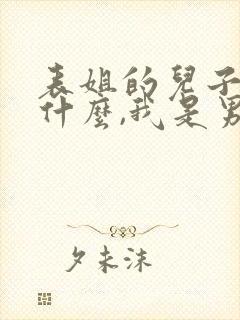 表姐的兒子
什麼,我是男
夕未沫